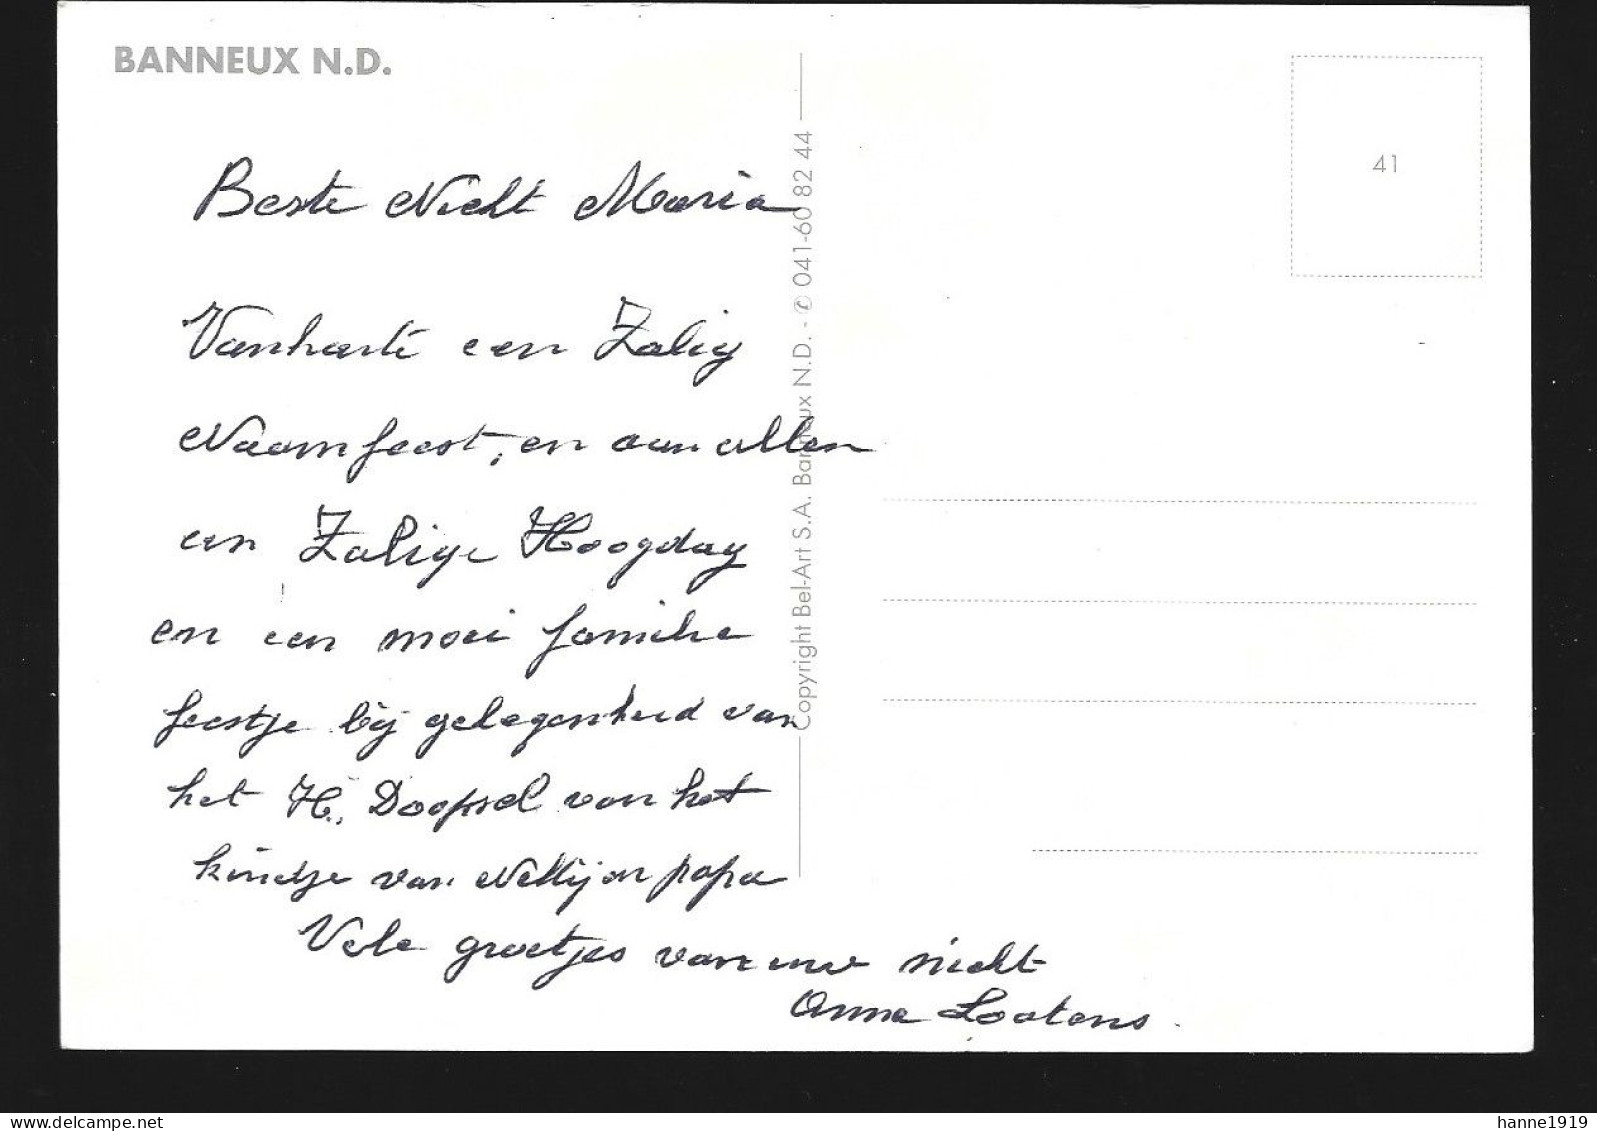 BANNEUX N.D.
41
Beste Nicht Maria
Vanharte een Zalig
Naamfeest, en aan allen
een Zalige Hoogdag
en een moei familie
feestje bij gelegenheid van
het H. Doopsel van het
kindje van Nelly en papa
Vele groetjes van uw nicht
Anne Lootens
Copyright Bel-Art S.A. Banneux N.D. - © 041-60 82 44
delcampe.net
hanne1919